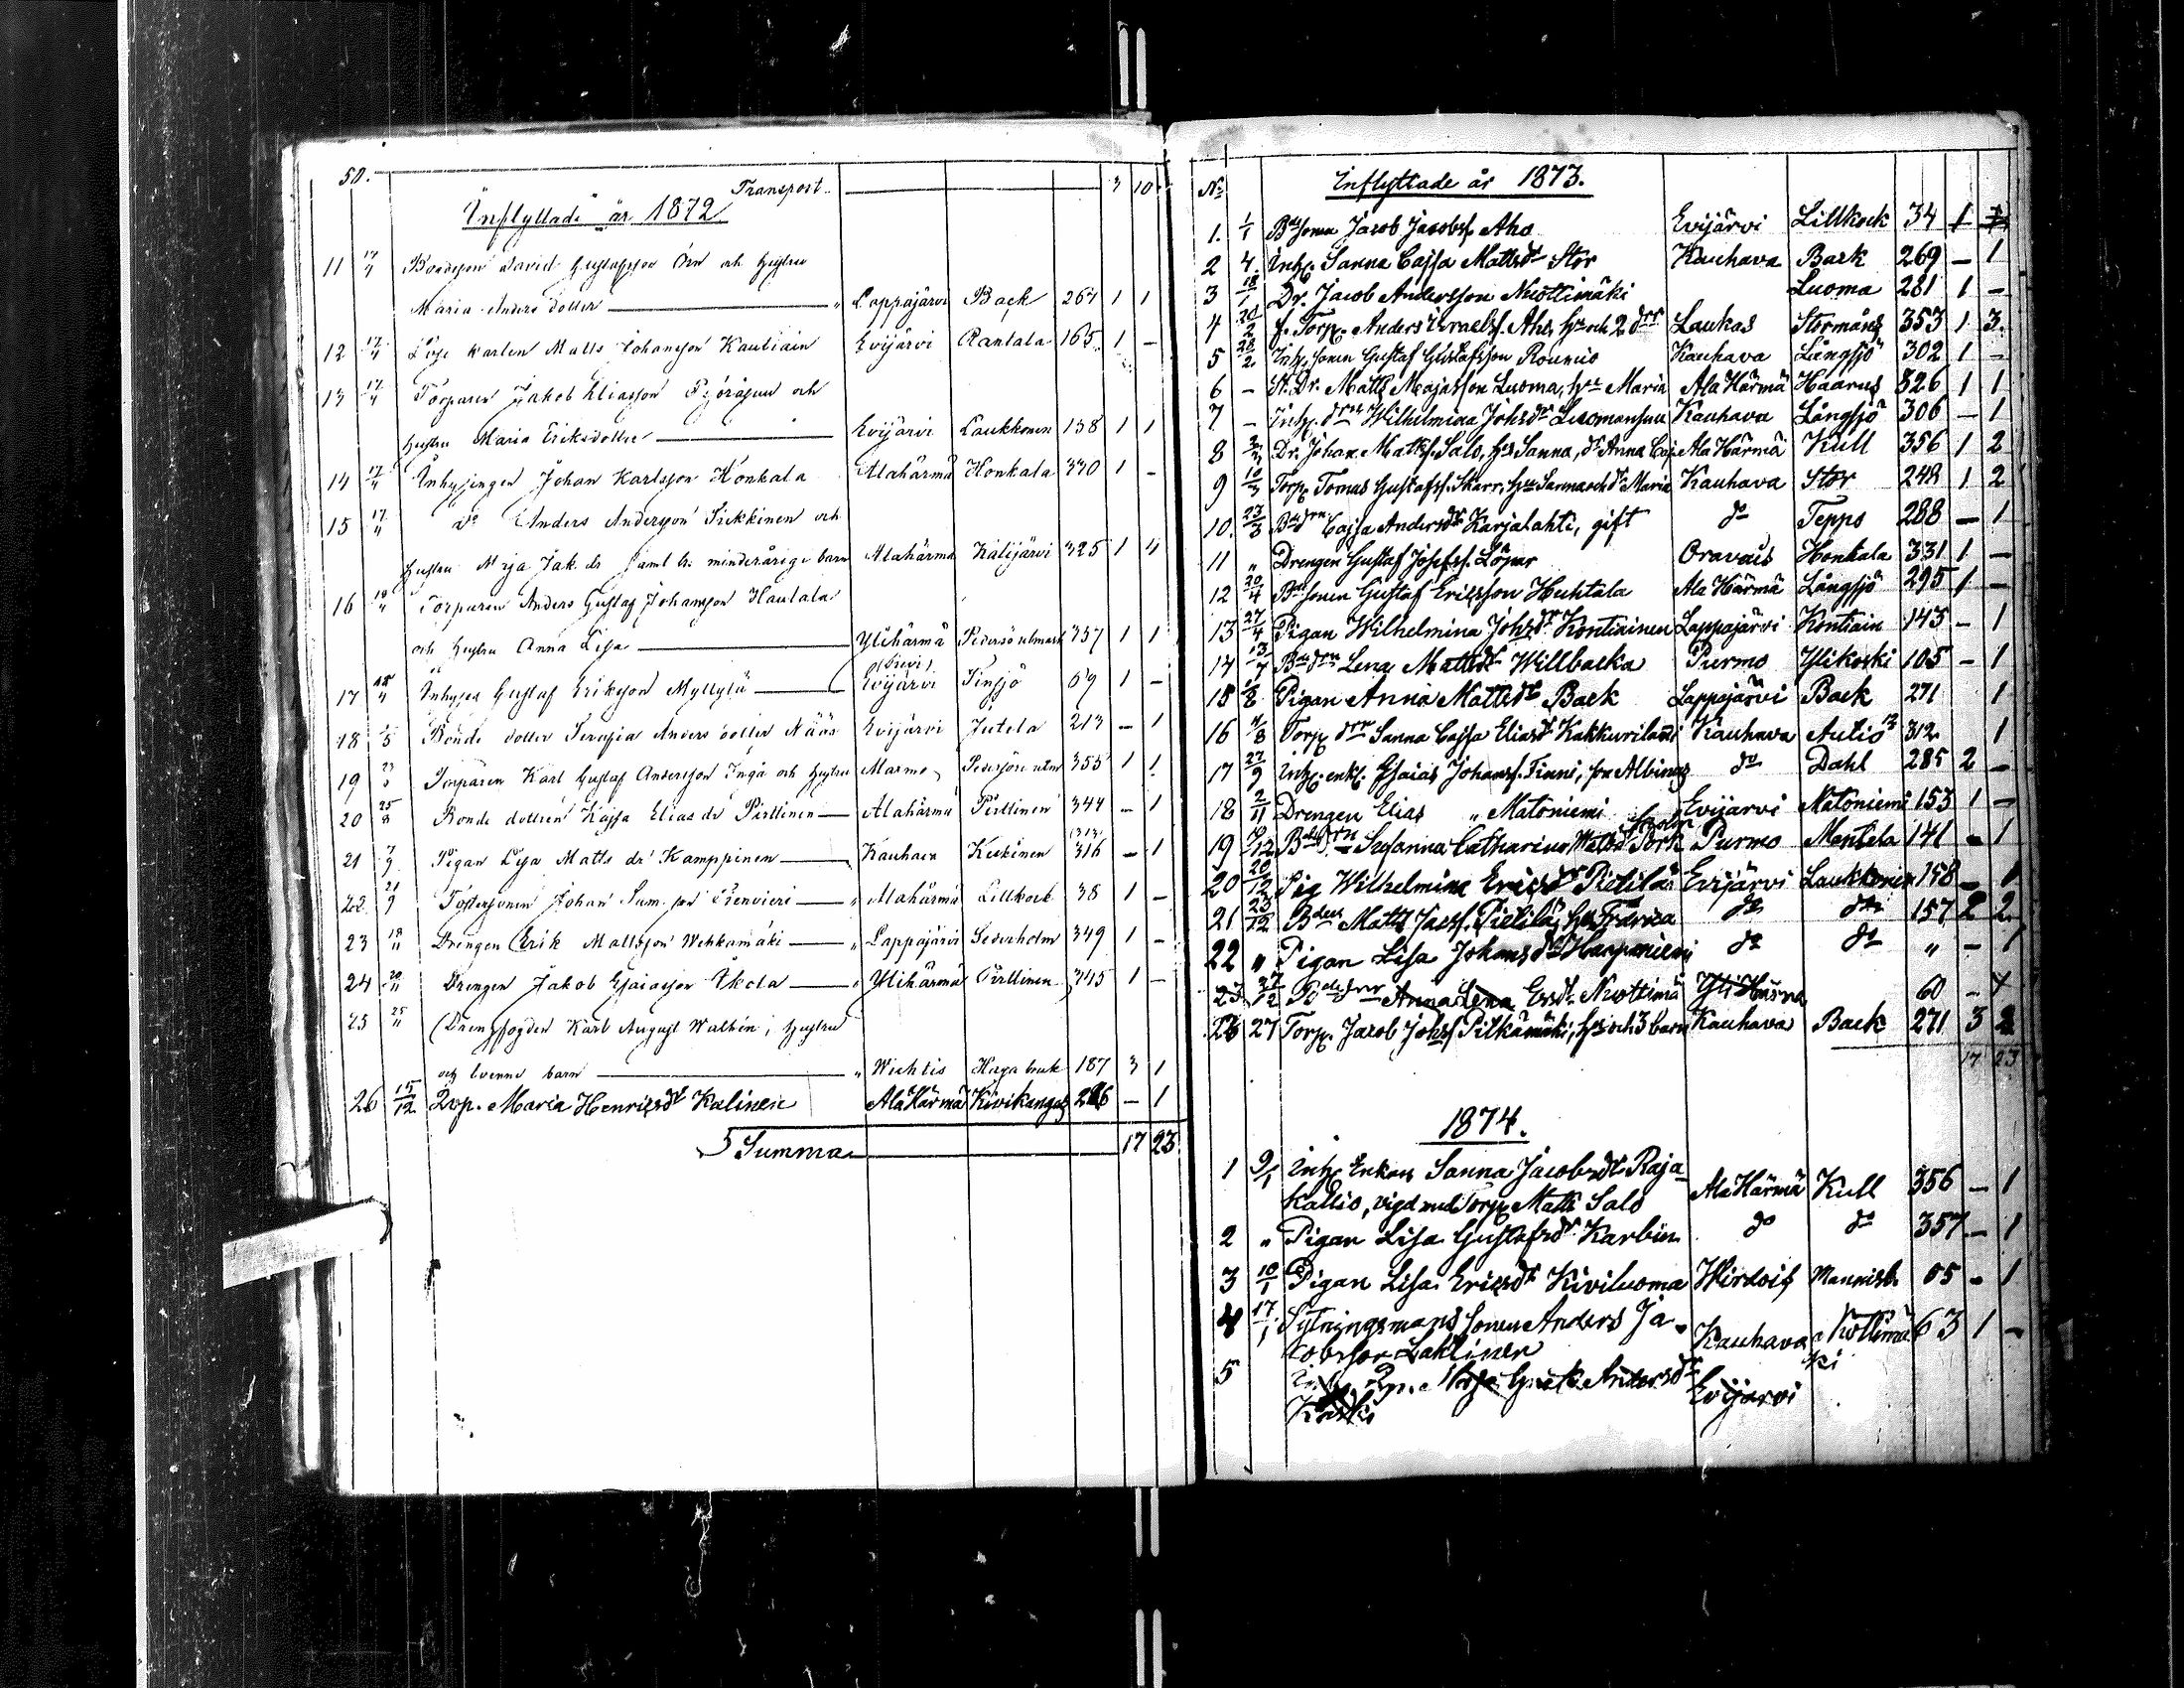 50.
Transport 3 10
Inflyttade år 1872
11 17/4 Bondeson David Gustafsson Örn och hustru
Maria Anders dotter " Lappajärvi Back 267 1 1
12 17/4 karlen Matts Johansson Kautiain Evijärvi Rantala 165 1 -
13 17/4 Torparen Jakob Eliasson och
hustru Maria Eriksdotter Evijärvi Laukkonen 138 1 1
14 17/4 Inhysingen Johan Karlsson Honkala Alahärmä Honkala 330 1 -
15 17/4 do Anders Andersson Sirkkinen och
hustru Maja Jak. dr samt minderåriga barn Alahärmä Kalijärvi 325 1 4
16 Torparen Anders Gustaf Johansson Hautala
och hustru Anna Lisa Ylihärmä Pedersö utmark 357 1 1
17 Inhyses Gustaf Eriksson Myllylä Evijärvi Finsjö 69 1 -
18 Bonde dotter Serafia Anders dotter Nääs Evijärvi Jutela 213 - 1
19 Torparen Karl Gustaf Andersson Inga och hustru 355 1 1
20 25 Bonde dottren Kajsa Elias dr Pirttinen Alahärmä Pirttinen 344 - 1
21 Pigan Lisa Matts dr Kamppinen Kauhava Keikinen 316 - 1
22 21/9 Fostersonen Johan Sam. son Alahärmä Lillkock 38 1 -
23 18/11 Drengen Erik Mattsson Wehkamäki " Lappajärvi Sederholm 349 1 -
24 20/11 Drengen Jakob Esaiasson Ekola " Ylihärmä Pirttinen 345 1 -
25 25/11 Drengfogden Karl August Walbin, hustru
och tvenne barn " Wichtis Haga bruk 187 3 1
26 15/12 Qvp. Maria Henricsdr Kalinen Ala Härmä Kivikangas - 1
Summa 17 23
No Inflyttade år 1873.
1. 1/1 Bdesonen Jacob Jacobsf Aho Evijärvi Lillkock 34 1
2 4. Inh. Sanna Cajsa Mattsdr Stor Kauhava Back 269 - 1
3 18/1 Dr. Jacob Andersson Nuottimäki Luoma 281 1 -
4 f. Torp. Anders Israelsf. Aho, hu och 2 drr Laukas Stormåns 353 1 3.
5 Inh. sonen Gustaf Gustafsson Rounuo Kauhava Långsjö 302 1 -
6 - St. Dr. Matts Majasson Luoma, hu Maria Ala Härmä Haarus 326 1 1
7 - Inh. drn Wilhelmina Johsdr Luomansuu Kauhava Långsjö 306 - 1
8 Dr. Johan Mattsf. Salo, hu Sanna, dr Anna Caj. Ala Härmä Kull 356 1 2
9 10/3 Torp. Tomas Gustafsf. Skarr, hu Sanna och dr Maria Kauhava Stor 248 1 2
10. 23/3 Bdedrn Cajsa Andersdr Karjalahti, gift do Tepps 288 - 1
11 " Drengen Gustaf Josefsf. Löpar Oravais Honkala 331 1 -
12 20/4 Bdesonen Gustaf Ericsson Huhtala Ala Härmä Långsjö 295 1 -
13 27/4 Pigan Wilhelmina Johsdr Kontiainen Lappajärvi Kontiain 143 - 1
14 13/7 Bdedrn Lena Mattsdr Willbacka Purmo Ylikoski 105 - 1
15 Pigan Anna Mattsdr Back Lappajärvi Back 271 1
16 Torp. drn Sanna Cajsa Eliasdr Kakkurilami Kauhava Autio 312 1
17 27/9 Inh. enkl. Esaias Johansf. Finni, son Albinus do Dahl 285 2 -
18 2/11 Drengen Elias " Matoniemi Evijärvi Matoniemi 153 1 -
19 Bdedrn Susanna Catharina Mattsdr Purmo Mentela 141 - 1
20 20/12 Pig Wilhelmina Ericsdr Pietilä Evijärvi Laukkonen 158 - 1
21 23/12 Bden Matts Jacsf. Pietilä, hu Fredrica do do 157 2 2
22 " Pigan Lisa Johansdr Harjuniemi do do " - 1
23 27/12 Anna Lena Ersdr Nuottimä Yli Härmä 60 -
23 27 Torp. Jacob Johsf Pitkämäki, hu och 3 barn Kauhava Back 271 3 2
17 23
1874.
1 9/1 Inh. Enkan Sanna Jacobsdr Raja-
kallio, vigd med Torp. Matts Salo Ala Härmä Kull 356 - 1
2 " Pigan Lisa Gustafsdr Karbin do do 357 - 1
3 10/1 Pigan Lisa Ericsdr Kiviluoma Wirdois Mannisb. 65 - 1
4 17/1 Sytningsmanssonen Anders Ja-
kobsson Lahtinen Kauhava Nottimä 63 1 -
ki
5 Qp. Maja Greta Andersdr Evijärvi
Koski